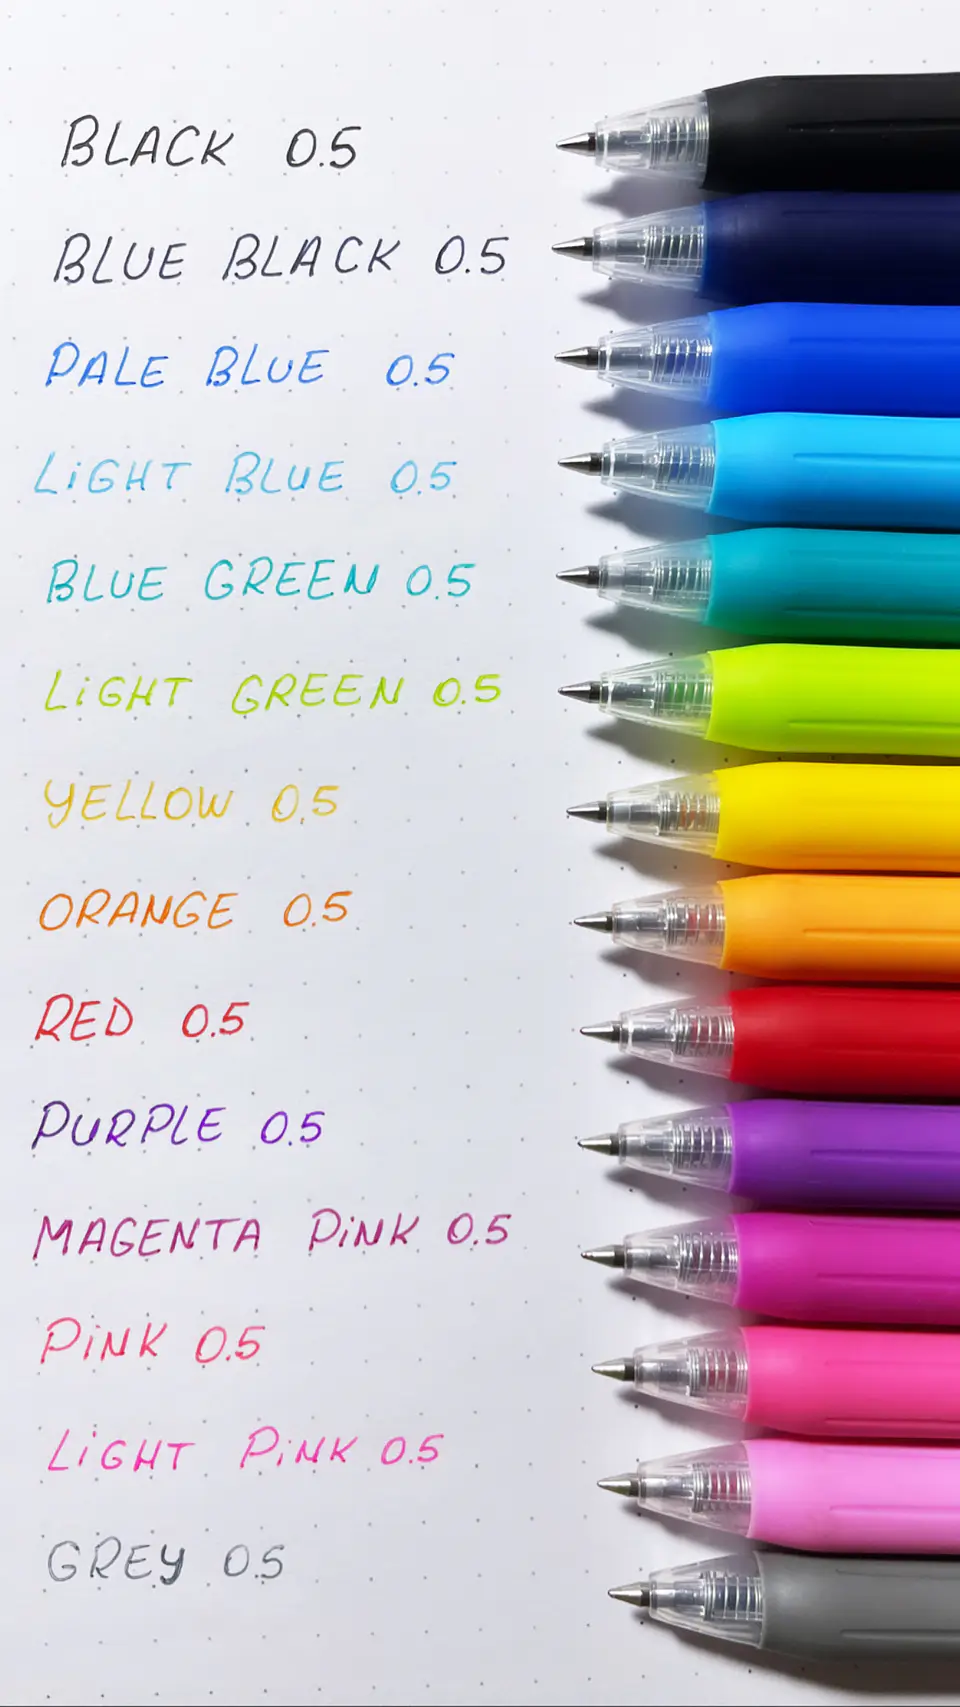 BLACK 0.5
BLUE BLACK 0.5
PALE BLUE 0.5
LiGHT BLUE 0.5
BLUE GREEN 0.5
LiGHT GREEN 0.5
YELLOW 0.5
ORANGE 0.5
RED 0.5
PURPLE 0.5
MAGENTA PiNK 0.5
PiNK 0.5
LiGHT PiNK 0.5
GREY 0.5